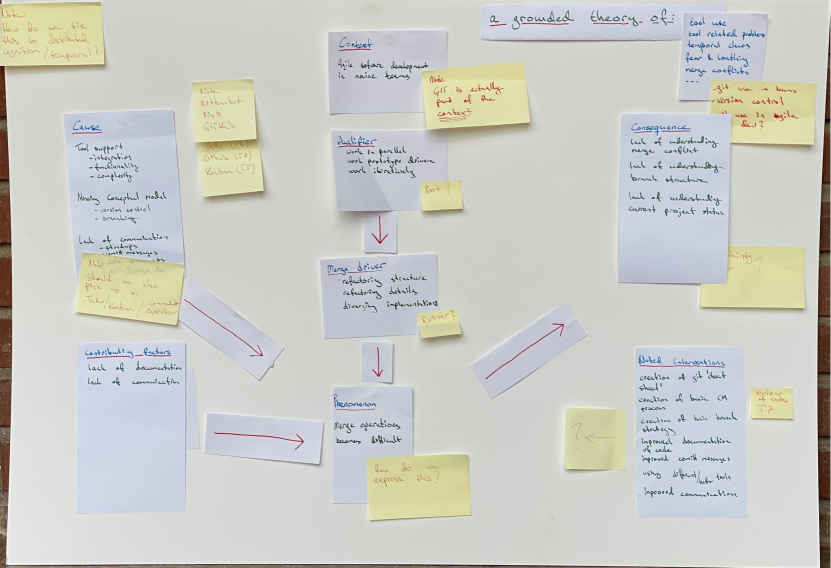 Note:
How do we tie
this to distributed
cognition / temporal?
a grounded theory of:
tool use
tool related problems
temporal
fear & loathing
merge conflicts
---
git use in teams
version control
use in agile
dev?
Context
Agile software development
in novice teams
Note
GIT is actually
part of the
context
Note
Bitbucket
Not
GitHub
Github (T7)
Kanban (T5)
Cause
Tool support
- integration
- functionality
- complexity
Missing conceptual model
- version control
- branching
Lack of communication
- standups
- commit messages
Note
Should we also
pick up on
/ Kanban /
Qualifier
work in parallel
work prototype driven
work iteratively
Boot?
Merge driver
- refactoring structure
- refactoring details
- diverging implementations
Driver?
Consequence
lack of understanding
merge conflict
lack of understanding
branch structure
lack of understanding
current project status
?
Contributing factors
lack of documentation
lack of communication
Phenomenon
Merge operations
becomes difficult
How do we
express this?
?
Noted Interventions
creation of git 'cheat
sheet'
creation of basic CM
process
creation of basic branch
strategy
improved documentation
of code
improved commit messages
using different/better tools
Improved communication
review
of code
T7